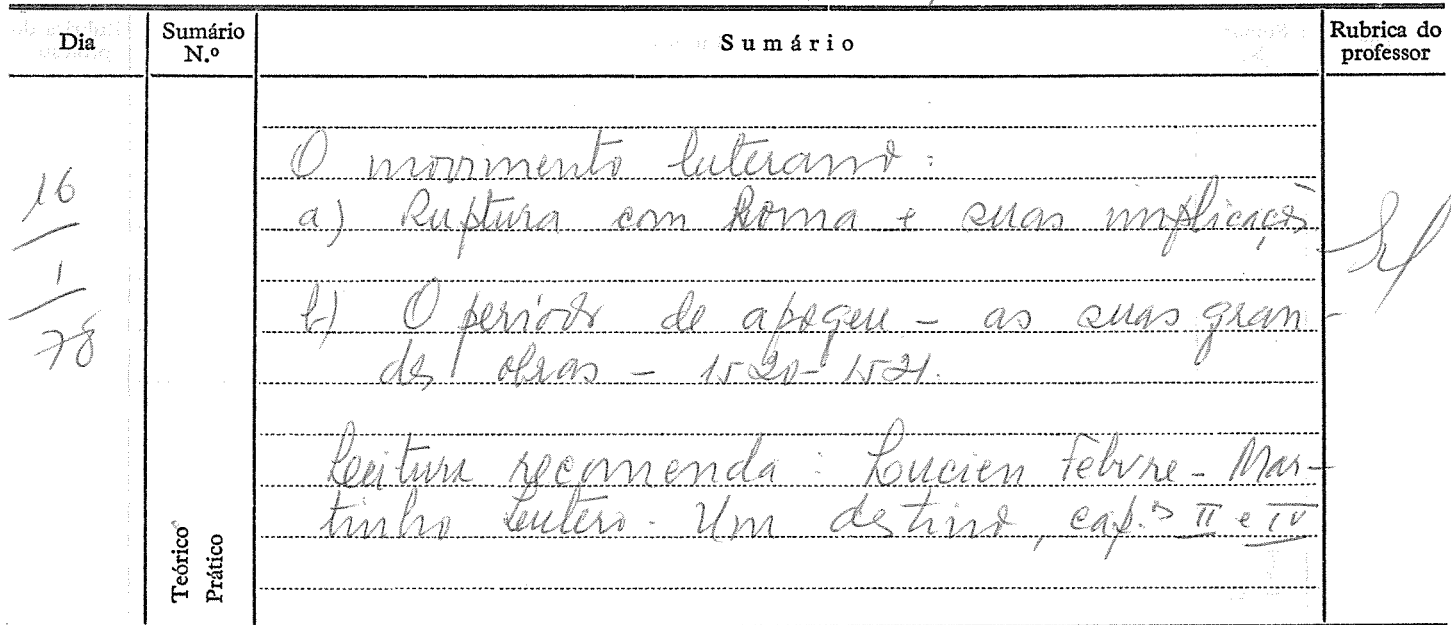 Dia
Sumário N.º
Sumário
Rubrica do professor
16
1
78
O movimento luterano:
a) Ruptura com Roma e suas implicações
b) O período de apogeu - as suas gran-
des obras - 1520-1521.
Leitura recomenda: Lucien Febvre - Mar-
tinho Lutero. Um destino, cap.s II e IV
Teórico
Prático